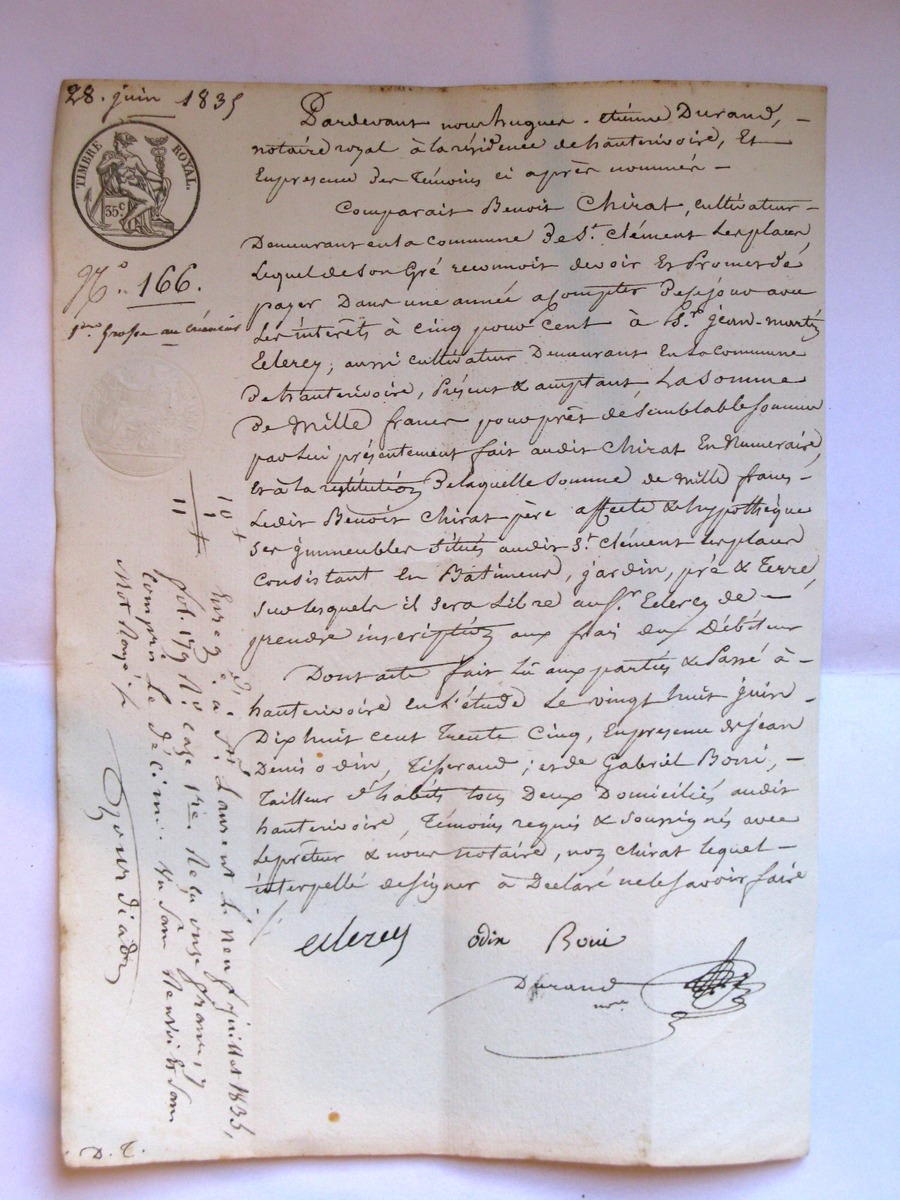 28. juin 1835
TIMBRE ROYAL.
35c
No. 166.
1ere Grosse au créancier
Pardevant nous hugues-étienne Durand, -
notaire royal à la résidence de hauterivoire, Et
En présence des Témoins ci après nommés -
Comparait Benoit Chirat, cultivateur -
Demeurant en la commune De St. Clément Les places
Lequel de son Gré reconnoit devoir Et Promet de
payer Dans une année a Compter De ce jour avec
Les intérêts à cinq pour cent à Sr. jean-marie
Eclercy; aussi cultivateur Demeurant En la commune
De hauterivoire, Présent & acceptant La Somme
De Mille francs pour prêt de semblable somme
par Lui présentement fait audit Chirat En Numeraire,
Et à la restitution De laquelle Somme de Mille francs -
Ledit Benoit Chirat père affecte & hypothèque
Ses jmmeubles Situés audit St. Clément Les places
Consistant En Bâtiments, jardin, pré & Terre,
Sur lesquels il sera Libre au Sr. Eclercy de -
prendre inscription aux frais du Débiteur
Dont acte fait Lu aux parties & Passé à -
hauterivoire En L'étude Le vingt huit juin -
Dix huit cent Trente Cinq, En présence de jean
Denis odin, Tisserand; et de Gabriel Boiri, -
Tailleur d'habits tous Deux Domiciliés audit
hauterivoire, Témoins requis & soussignés avec
Le prêteur & nous notaire, non Chirat lequel -
interpellé de signer à Déclaré ne le savoir faire
eclercy odin Boiri
Durand
nre
10
1
11
Enreg. à St. Laurent le neuf juillet 1835,
fol. 179 Ro. case 
compris le décime 
Mot Rayé 
D. T.